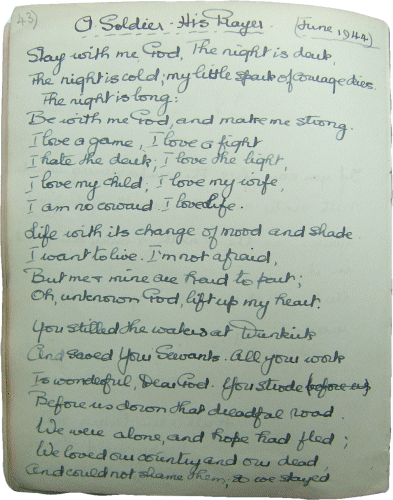 43)
A Soldier - His Prayer. (June 1944)
Stay with me God, The night is dark,
The night is cold; my little spark of courage dies.
The night is long:
Be with me God, and make me strong.
I love a game, I love a fight
I hate the dark; I love the light,
I love my child, I love my wife,
I am no coward. I love life.
Life with its change of mood and shade.
I want to live. I'm not afraid,
But me & mine are hard to part;
Oh, unknown God, lift up my heart.
You stilled the waters at Dunkirk
And saved Your Servants. All your work
Is wonderful, Dear God. You strode before us
Before us down that dreadful road.
We were alone, and hope had fled;
We loved our country and our dead,
And could not shame them, so we stayed